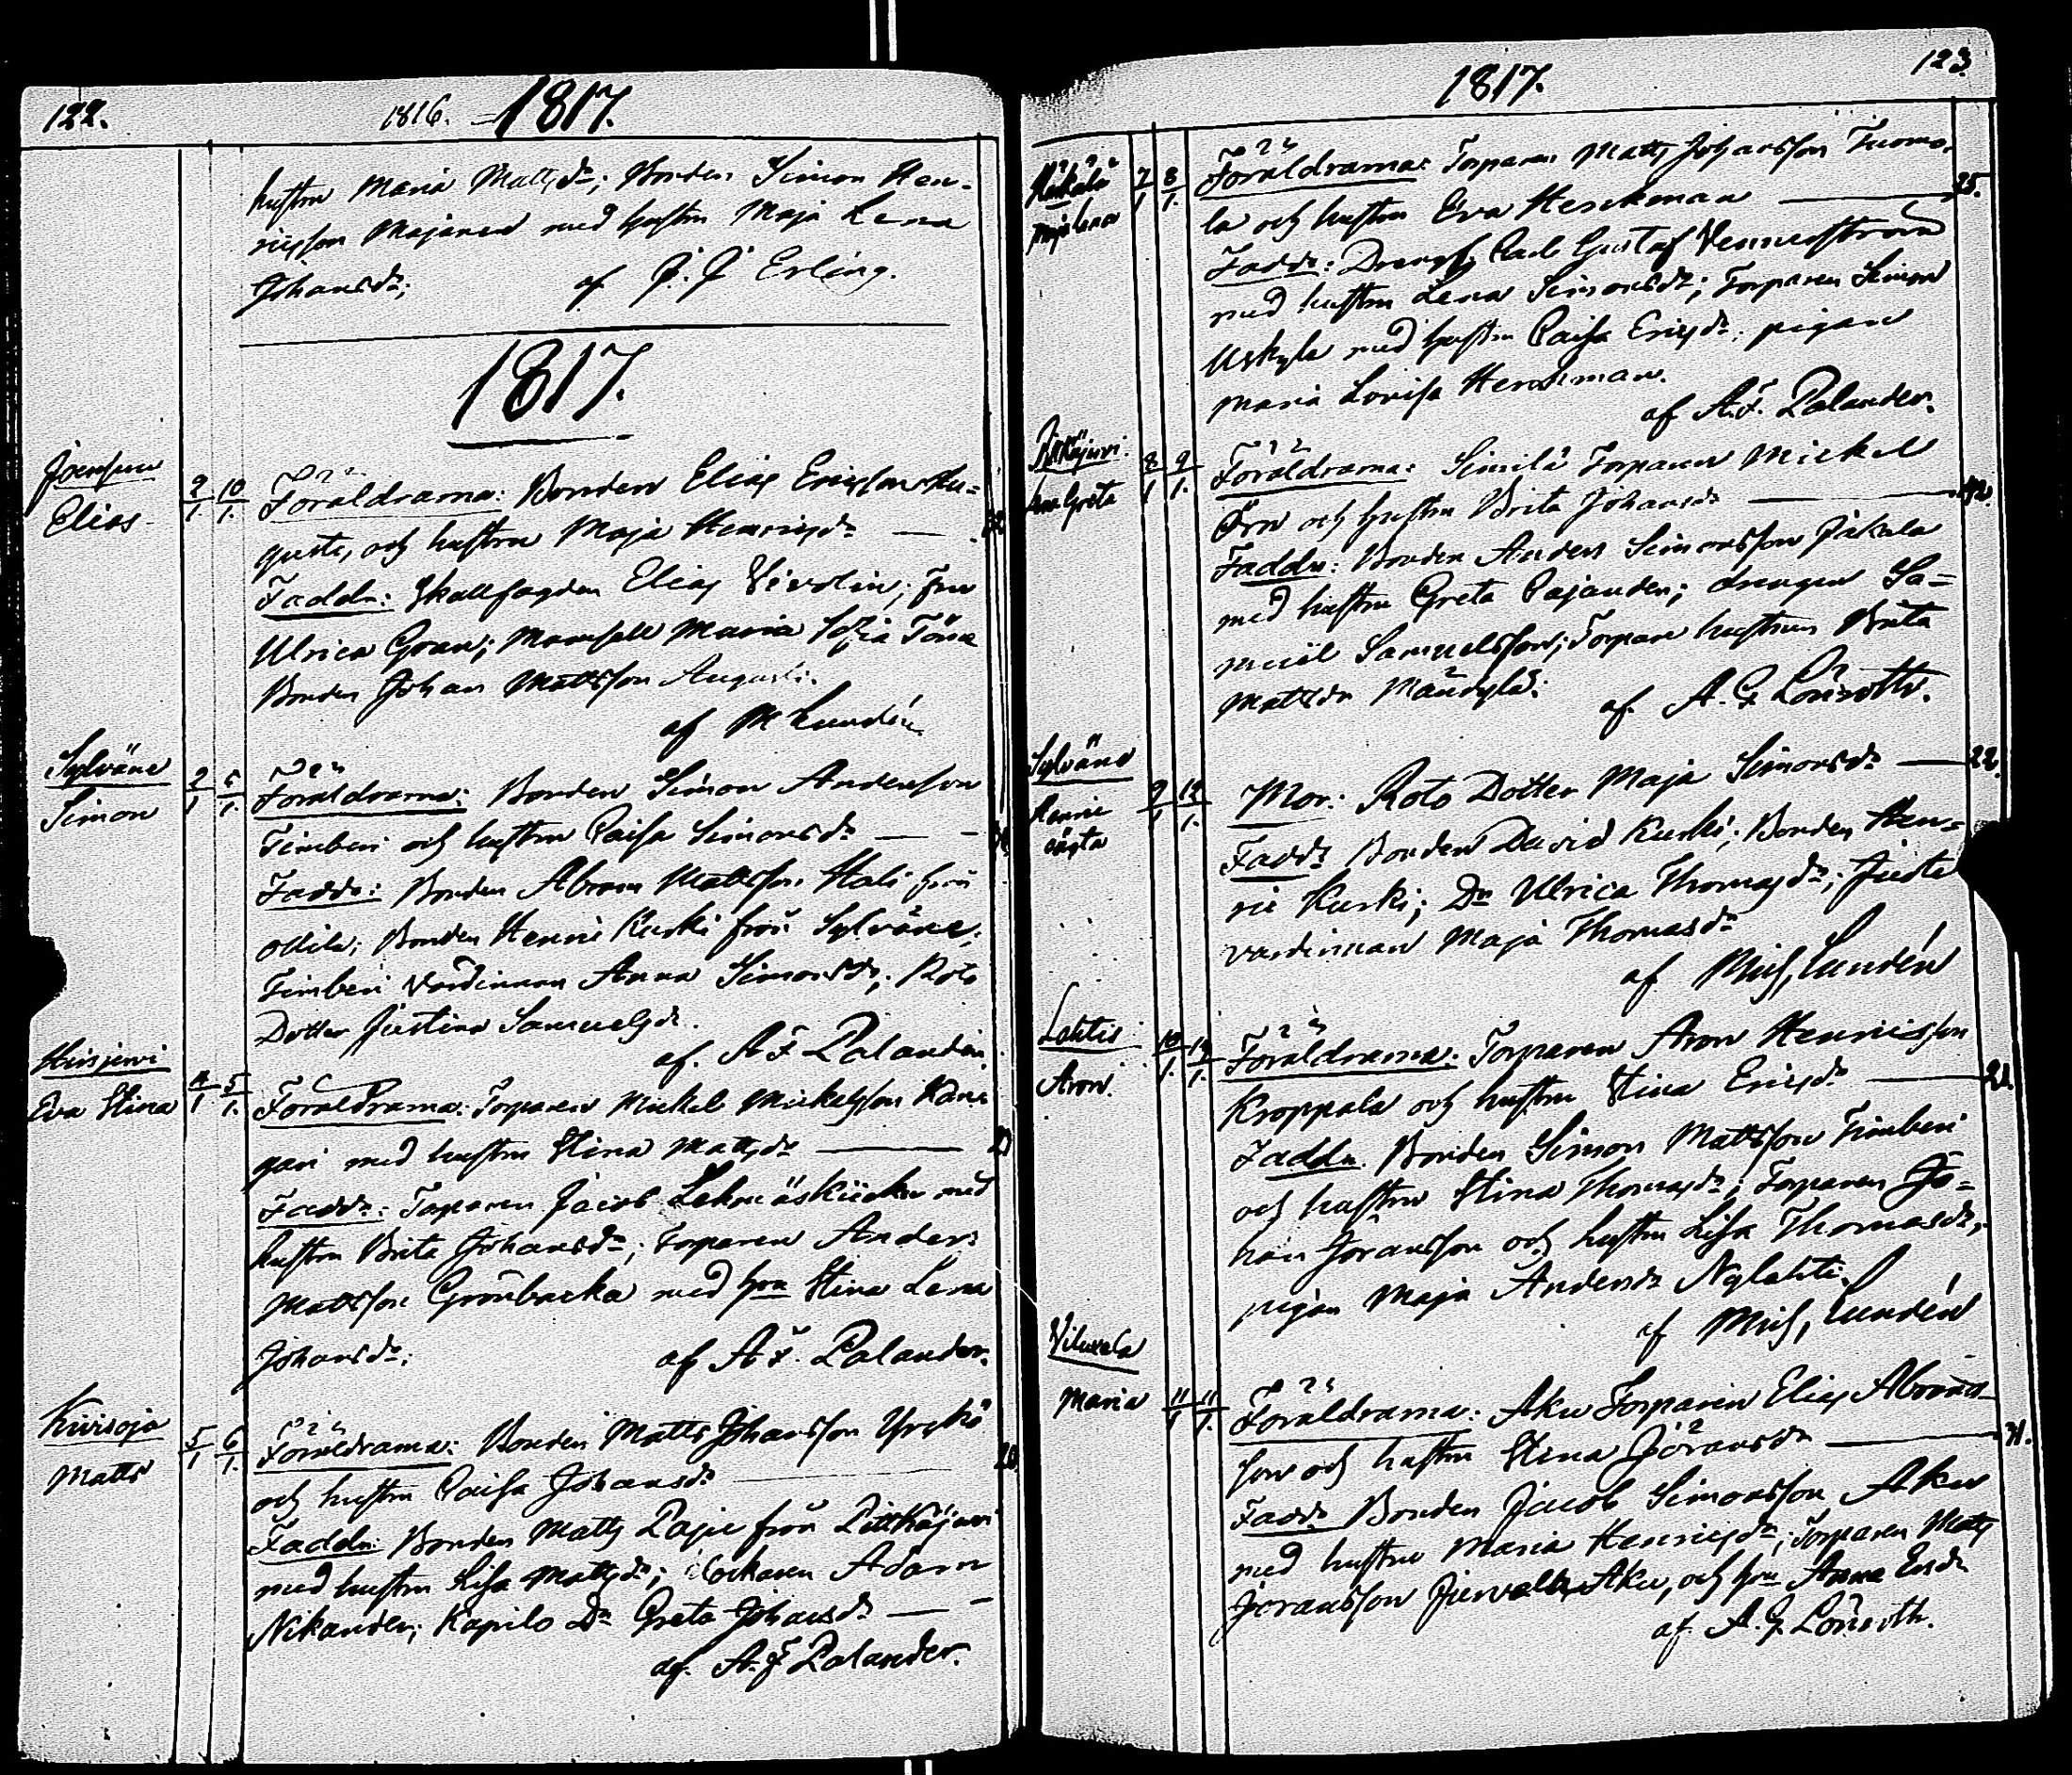 122.
1816. – 1817.
hustru Maria Mattsdr; Bonden Simon Hen-
ricsson Majanen med hustru Maja Lena
Johansdr; af J. J. Erling.
1817.
Joensuu
Elias 2/1 10/1. Föräldrarna: Bonden Elias Ericsson Au-
gusti, och hustru Maja Henricsdr —
Faddr: Elias; Fru
Ulrica Gran; Mamsell Maria Sofia
Bonden Johan Mattsson Augusti.
af M Lundén
Sylvänä
Simon 2/1 5/1. Föräldrarna: Bonden Simon Andersson
Timberi och hustru Caisa Simonsdr — —
Faddr: Bonden Abram Mattsson Hali från
Ollila; Bonden Henric Kurki från Sylvänä;
Timberi Värdinnan Anna Simonsdr; Roto
Dotter Justina Samuelsdr.
af. A F Palander.
Hirsjervi
Eva Stina 4/1 5/1. Föräldrarna: Torparen Mickel Mickelsson Kan-
gari med hustru Stina Mattsdr —
Faddr: Torparen Jacob med
hustru Brita Johansdr; Torparen Anders
Mattsson Grönbacka med hru Stina Lena
Johansdr; af A F. Palander.
Kivisoja
Matts 5/1 6/1. Föräldrarna: Bonden Matts Johansson Yrckö
och hustru Caisa Johansdr —
Faddr: Bonden Matts Pajie från Pittkäjervi
med hustru Lisa Mattsdr; Klockaren Adam
Nikander; Kapilo Dr Greta Johansdr — —
af. A. F Palander.
1817.
123.
Maja Lena 7/1 8/1. Föräldrarna: Torparen Matts Johansson Tuomo-
la och hustru Eva Herckman — 35.
Faddr: Carl Gustaf Vennerström
med hustru Lena Simonsdr; Torparen Simon
Uskyla med hustru Caisa Ericsdr; pigan
Maria Lovisa Herckman.
af A. F. Palander.
Pitkäjervi.
Ana Greta 8/1 9/1. Föräldrarna: Similä Torparen Mickel
Örn och hustru Brita Johansdr —
Faddr: Bonden Anders Simonsson Jakala
med hustru Greta Cajander; drengen Sa-
muel Samuelsson; Torpare hustrun Brita
Mattsdr
af. A. G Lönroth.
Sylvänä
Henric
oägta 9/1 12/1. Mor: Roto Dotter Maja Simonsdr — 22.
Faddr Bonden David Kurki; Bonden Hen-
ric Kurki; Dr Ulrica Thomasdr; Justa
värdinnan Maja Thomasdr
af Mich, Lundén
Lahtis
Aron. 10/1. 12/1. Föräldrarna: Torparen Aron Henricsson
Kroppala och hustru Stina Ericsdr —
Faddr. Bonden Simon Mattsson Timberi
och hustru Stina Thomasdr; Torparen Jo-
han Joransson och hustru Lisa Thomasdr,
pigan Maja Andersdr Nylahti.
af Mich, Lundén
Viluxela
Maria 11/1 11/1. Föräldrarna: Aku Torparen Elias Abrams-
son och hustru Stina Jöransdr — 31.
Faddr Bonden Jacob Simonsson Aku
med hustru Maria Henricsdr; Torparen Matts
Joransson Aku, och hru Anna Ersdr
af. A. G. Lönroth.